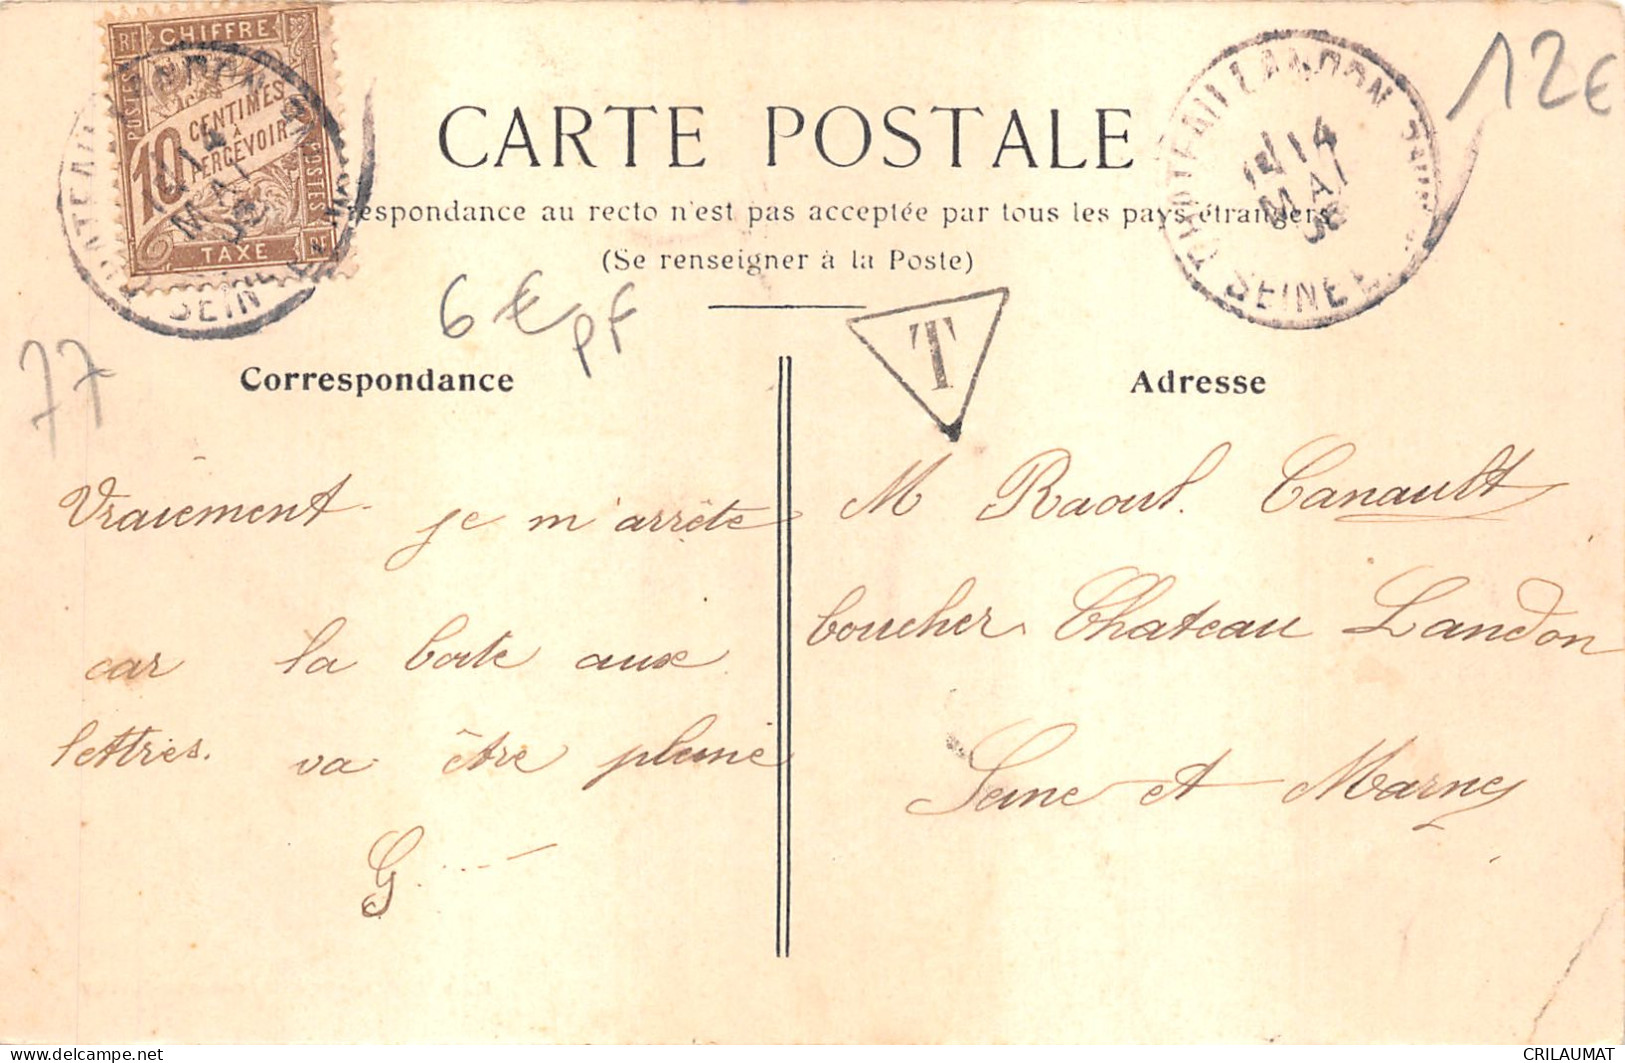 RF CHIFFRE
POSTES
10 CENTIMES
À
PERCEVOIR
POSTES
TAXE
14
MAI
CARTE POSTALE
respondance au recto n'est pas acceptée par tous les pays étrangers
(Se renseigner à la Poste)
14
MAI
12€
6 € PF
T
77
Correspondance
Vraiement je m'arrète
car la boite aux
lettres. va être pleine
G
Adresse
M Raoul. Canault
boucher Chateau Landon
Seine et Marne
CRILAUMAT